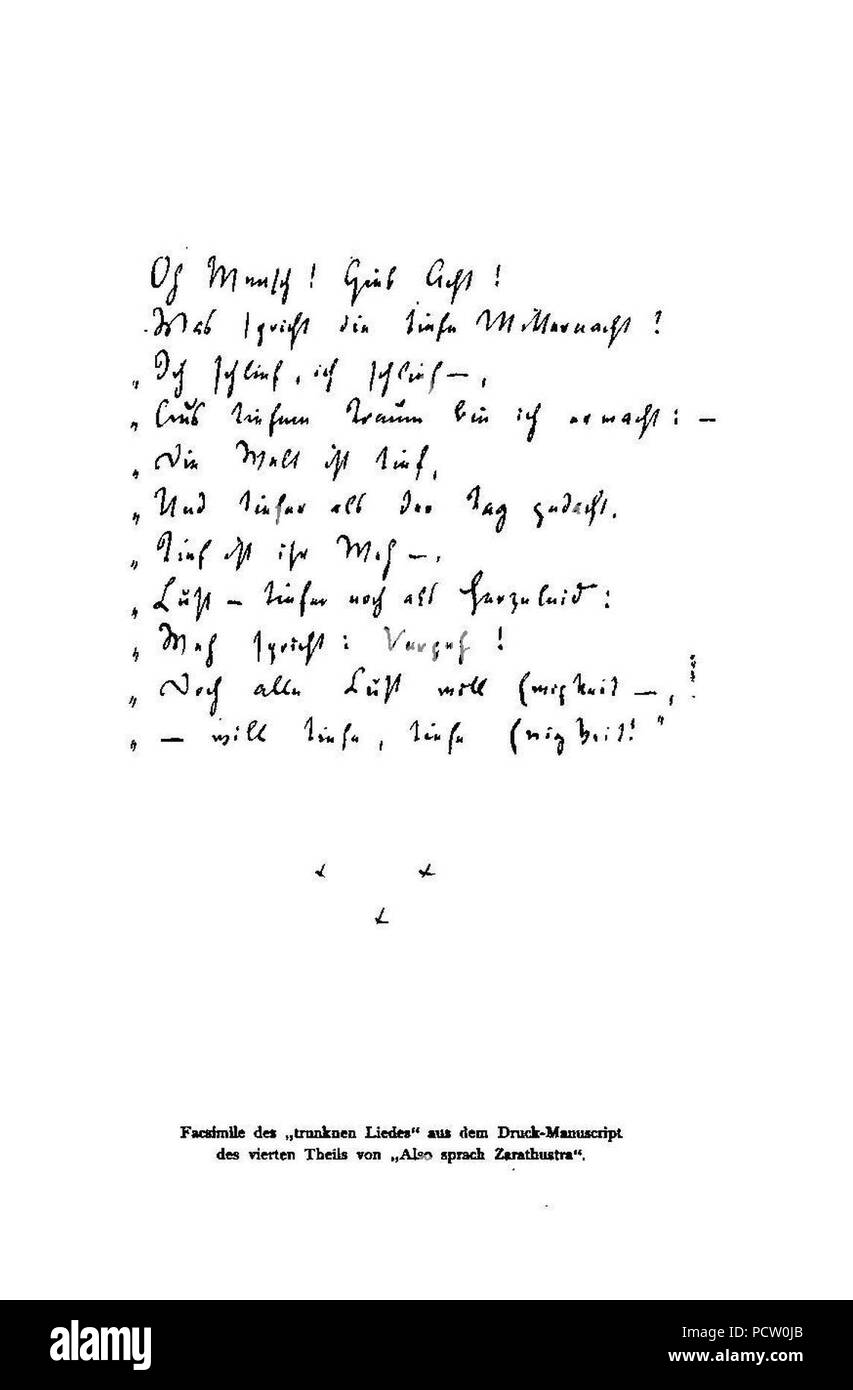 Oh Mensch! Gieb Acht!
Was spricht die tiefe Mitternacht?
„Ich schlief, ich schlief —,
„Aus tiefem Traum bin ich erwacht: —
„Die Welt ist tief,
„Und tiefer als der Tag gedacht.
„Tief ist ihr Weh —,
„Lust — tiefer noch als Herzeleid:
„Weh spricht: Vergeh!
„Doch alle Lust will Ewigkeit —,
„— will tiefe, tiefe Ewigkeit!"
Facsimile des „trunknen Liedes“ aus dem Druck-Manuscript
des vierten Theils von „Also sprach Zarathustra“.
alamy
Image ID: PCW0JB
www.alamy.com